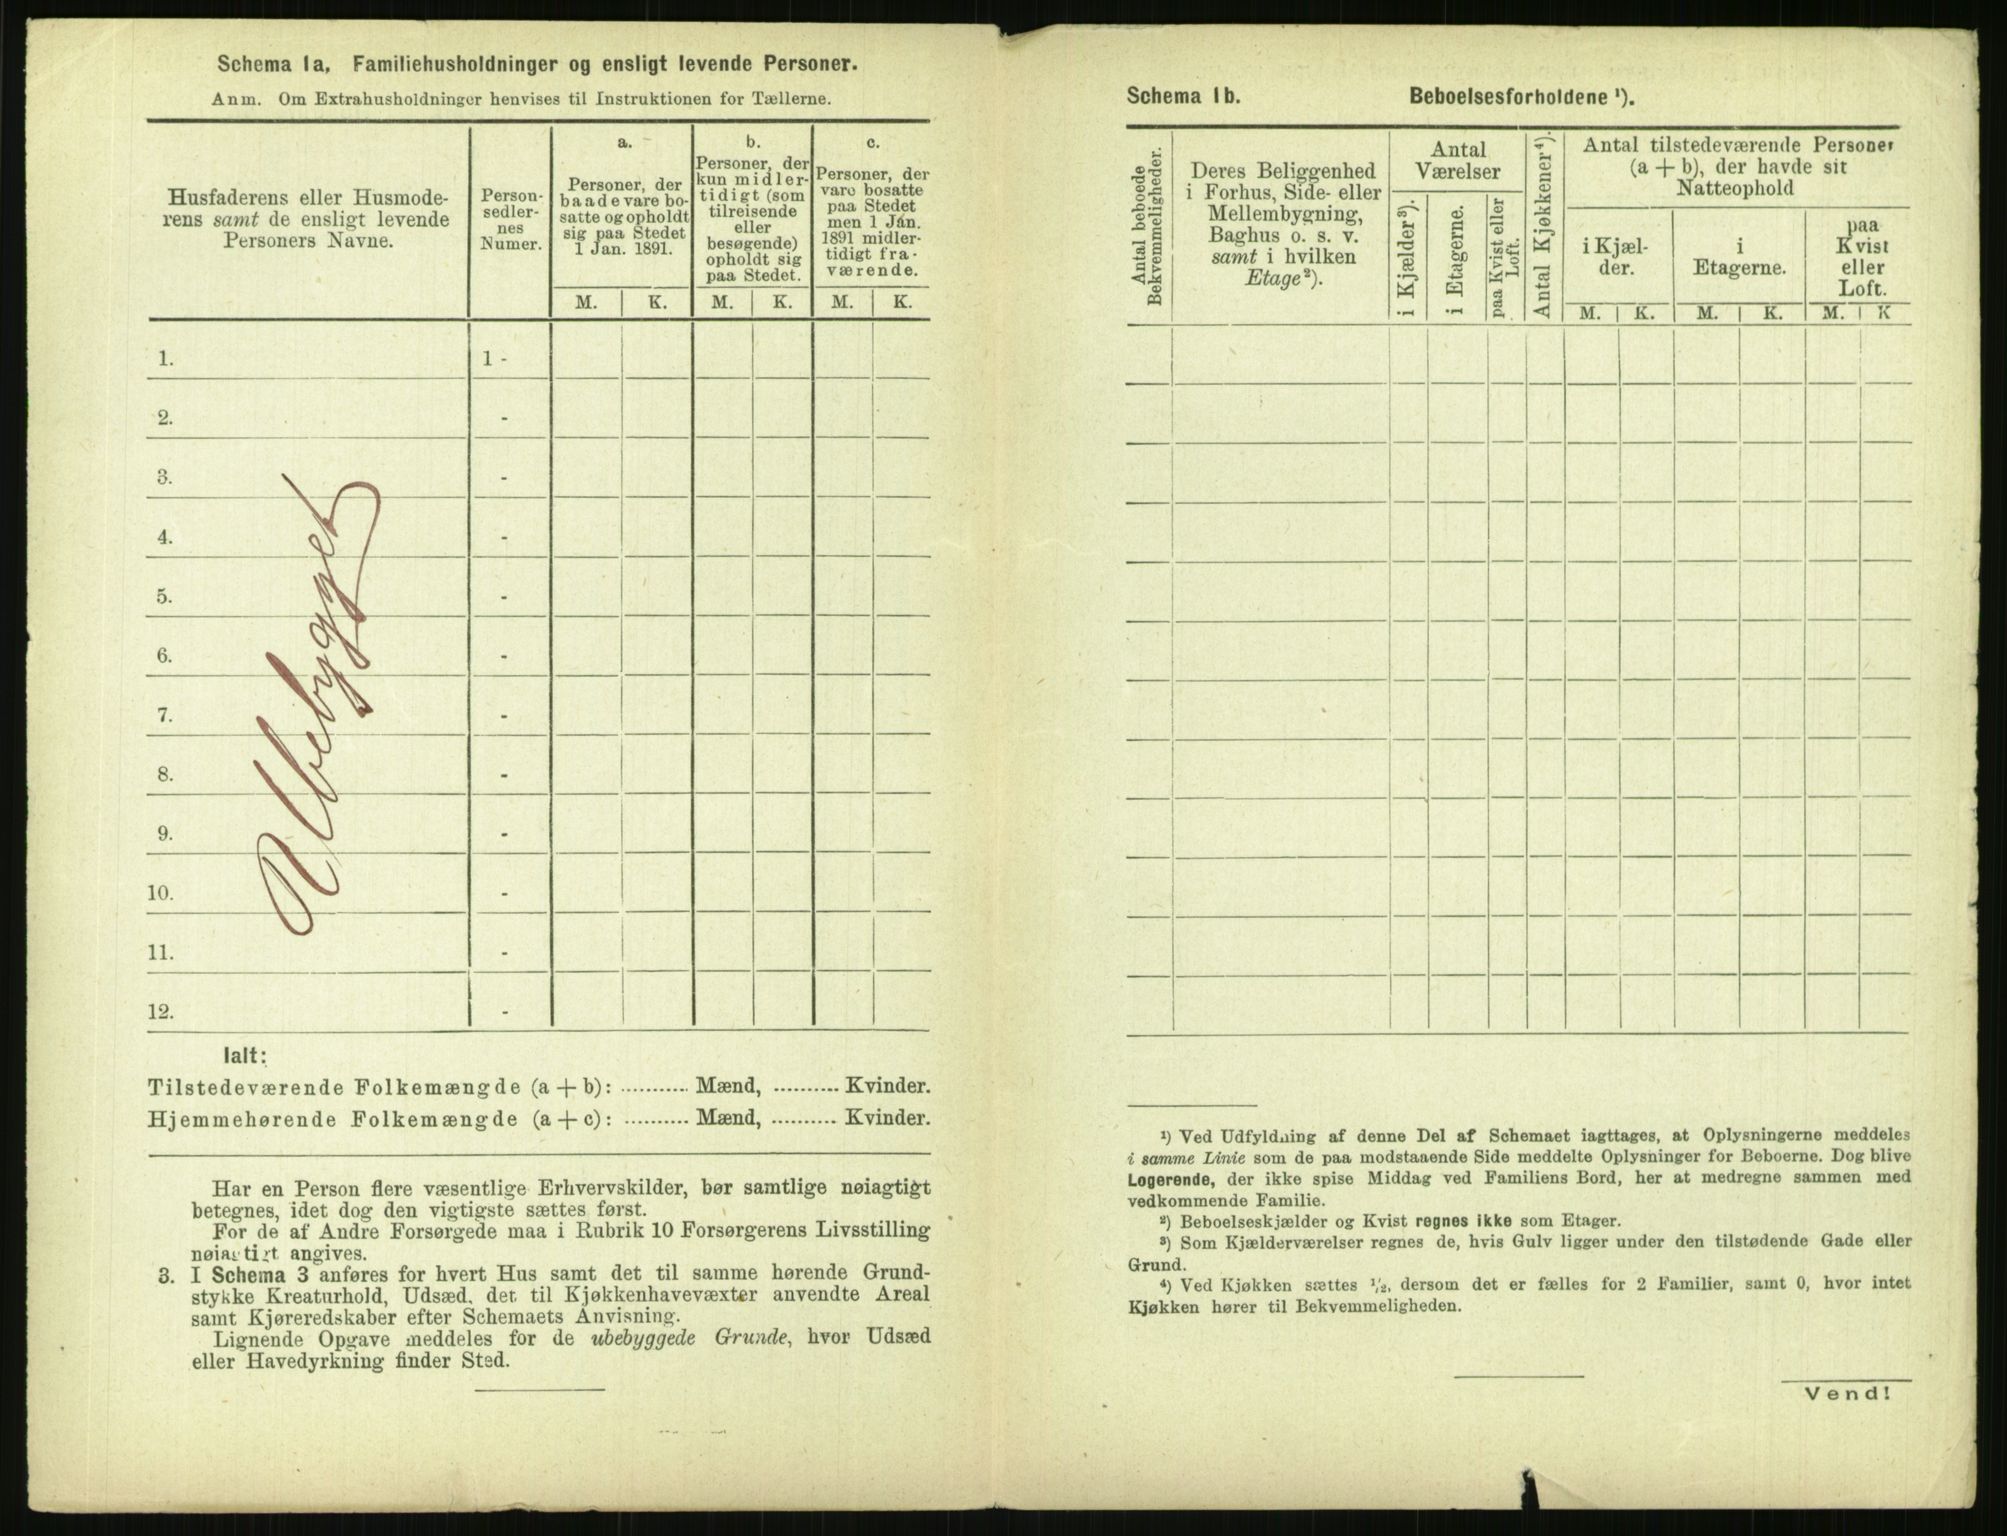 Schema 1a. Familiehusholdninger og ensligt levende Personer.
Anm. Om Extrahusholdninger henvises til Instruktionen for Tællerne.
Husfaderens eller Husmode-
rens samt de ensligt levende
Personers Navne.
Person-
sedler-
nes
Numer.
a.
Personer, der
baade vare bo-
satte og opholdt
sig paa Stedet
1 Jan. 1891.
b.
Personer, der
kun midler-
tidigt (som
tilreisende
eller
besøgende)
opholdt sig
paa Stedet.
c.
Personer, der
vare bosatte
paa Stedet
men 1 Jan.
1891 midler-
tidigt fra-
værende.
M. K. M. K. M. K.
1. 1 -
2. -
3. -
4. -
5. -
6. -
7. -
8. -
9. -
10. -
11. -
12. -
Ubebygget
Ialt:
Tilstedeværende Folkemængde (a + b): .......... Mænd, .......... Kvinder.
Hjemmehørende Folkemængde (a + c): .......... Mænd, .......... Kvinder.
Har en Person flere væsentlige Erhvervskilder, bør samtlige nøiagtigt
betegnes, idet dog den vigtigste sættes først.
For de af Andre Forsørgede maa i Rubrik 10 Forsørgerens Livsstilling
nøiagtigt angives.
3. I Schema 3 anføres for hvert Hus samt det til samme hørende Grund-
stykke Kreaturhold, Udsæd, det til Kjøkkenhavevæxter anvendte Areal
samt Kjøreredskaber efter Schemaets Anvisning.
Lignende Opgave meddeles for de ubebyggede Grunde, hvor Udsæd
eller Havedyrkning finder Sted.
Schema 1b. Beboelsesforholdene ¹).
Antal beboede
Bekvemmeligheder.
Deres Beliggenhed
i Forhus, Side- eller
Mellembygning,
Baghus o. s. v.
samt i hvilken
Etage²).
Antal
Værelser
i Kjælder³).
i Etagerne.
paa Kvist eller
Loft.
Antal Kjøkkener⁴).
Antal tilstedeværende Personer
(a + b), der havde sit
Natteophold
i Kjæl-
der.
i
Etagerne.
paa
Kvist
eller
Loft.
M. K. M. K. M. K
¹) Ved Udfyldning af denne Del af Schemaet iagttages, at Oplysningerne meddeles
i samme Linie som de paa modstaaende Side meddelte Oplysninger for Beboerne. Dog blive
Logerende, der ikke spise Middag ved Familiens Bord, her at medregne sammen med
vedkommende Familie.
²) Beboelseskjælder og Kvist regnes ikke som Etager.
³) Som Kjælderværelser regnes de, hvis Gulv ligger under den tilstødende Gade eller
Grund.
⁴) Ved Kjøkken sættes ¹/₂, dersom det er fælles for 2 Familier, samt 0, hvor intet
Kjøkken hører til Bekvemmeligheden.
Vend!